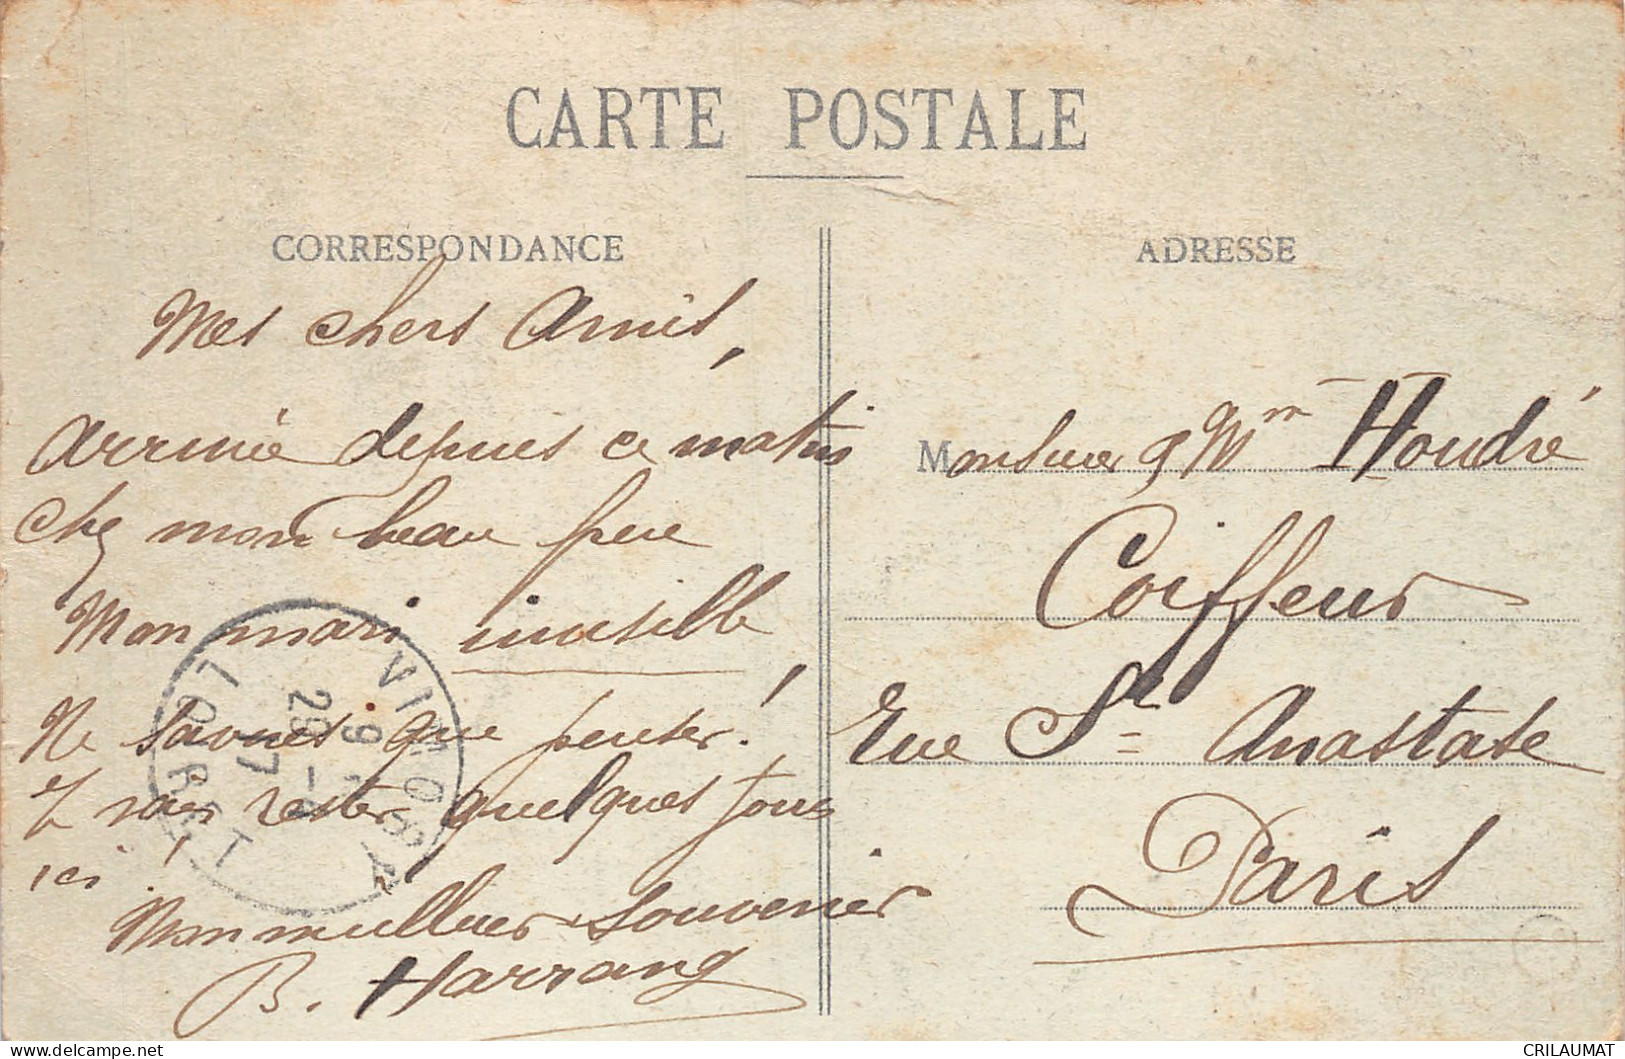 CARTE POSTALE
CORRESPONDANCE
ADRESSE
Mes chers Amis,
Arrivée depuis ce matin
Chez mon beau pere
Mon mari invisible,
Ne savoir que penser!
vais rester quelques jours
ici!
Mon meilleur souvenir
B. Harrang
Monsieur & Mm Houdré
Coiffeur
Rue St Anastase
Paris
VIMORY
LOIRET
29 -7
CRILAUMAT